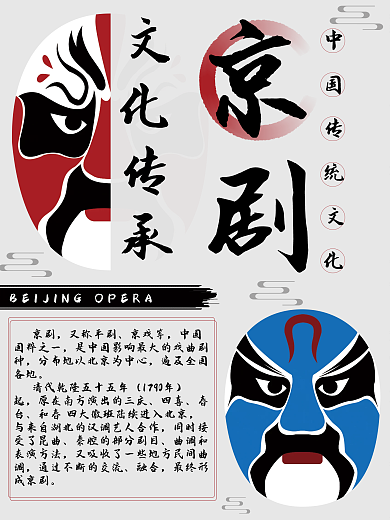 京剧
中国传统文化
文化传承
BEIJING OPERA
京剧，又称平剧、京戏等，中国
国粹之一，是中国影响最大的戏曲剧
种，分布地以北京为中心，遍及全国
各地。
清代乾隆五十五年（1790年）
起，原在南方演出的三庆、四喜、春
台、和春 四大徽班陆续进入北京，
与来自湖北的汉调艺人合作，同时接
受了昆曲、秦腔的部分剧目、曲调和
表演方法，又吸收了一些地方民间曲
调，通过不断的交流、融合，最终形
成京剧。